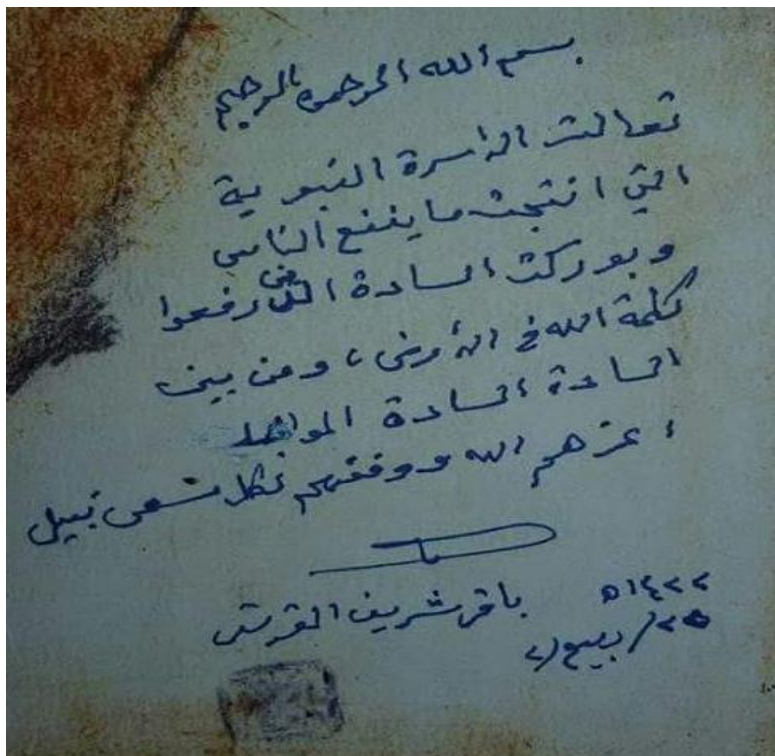 بسم الله الرحمن الرحيم
تعالت الاسرة النبوية
التي انتجت ما ينفع الناس
وبوركت السادة الذين رفعوا
كلمة الله في الأرض، ومن بين
السادة السادة
اعزهم الله ووفقهم لكل مسعى نبيل
باقر شريف القرشي
١٤٢٢ ه
٢٥ / ربيع ٢